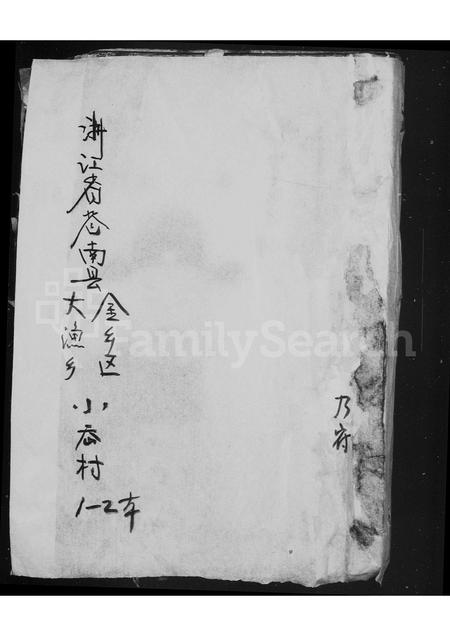 浙江省苍南县
金乡区
大渔乡
小岙村
1-2本
乃府
FamilySearch